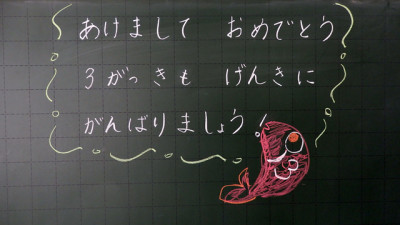 あけまして おめでとう
3がっきも げんきに
がんばりましょう!